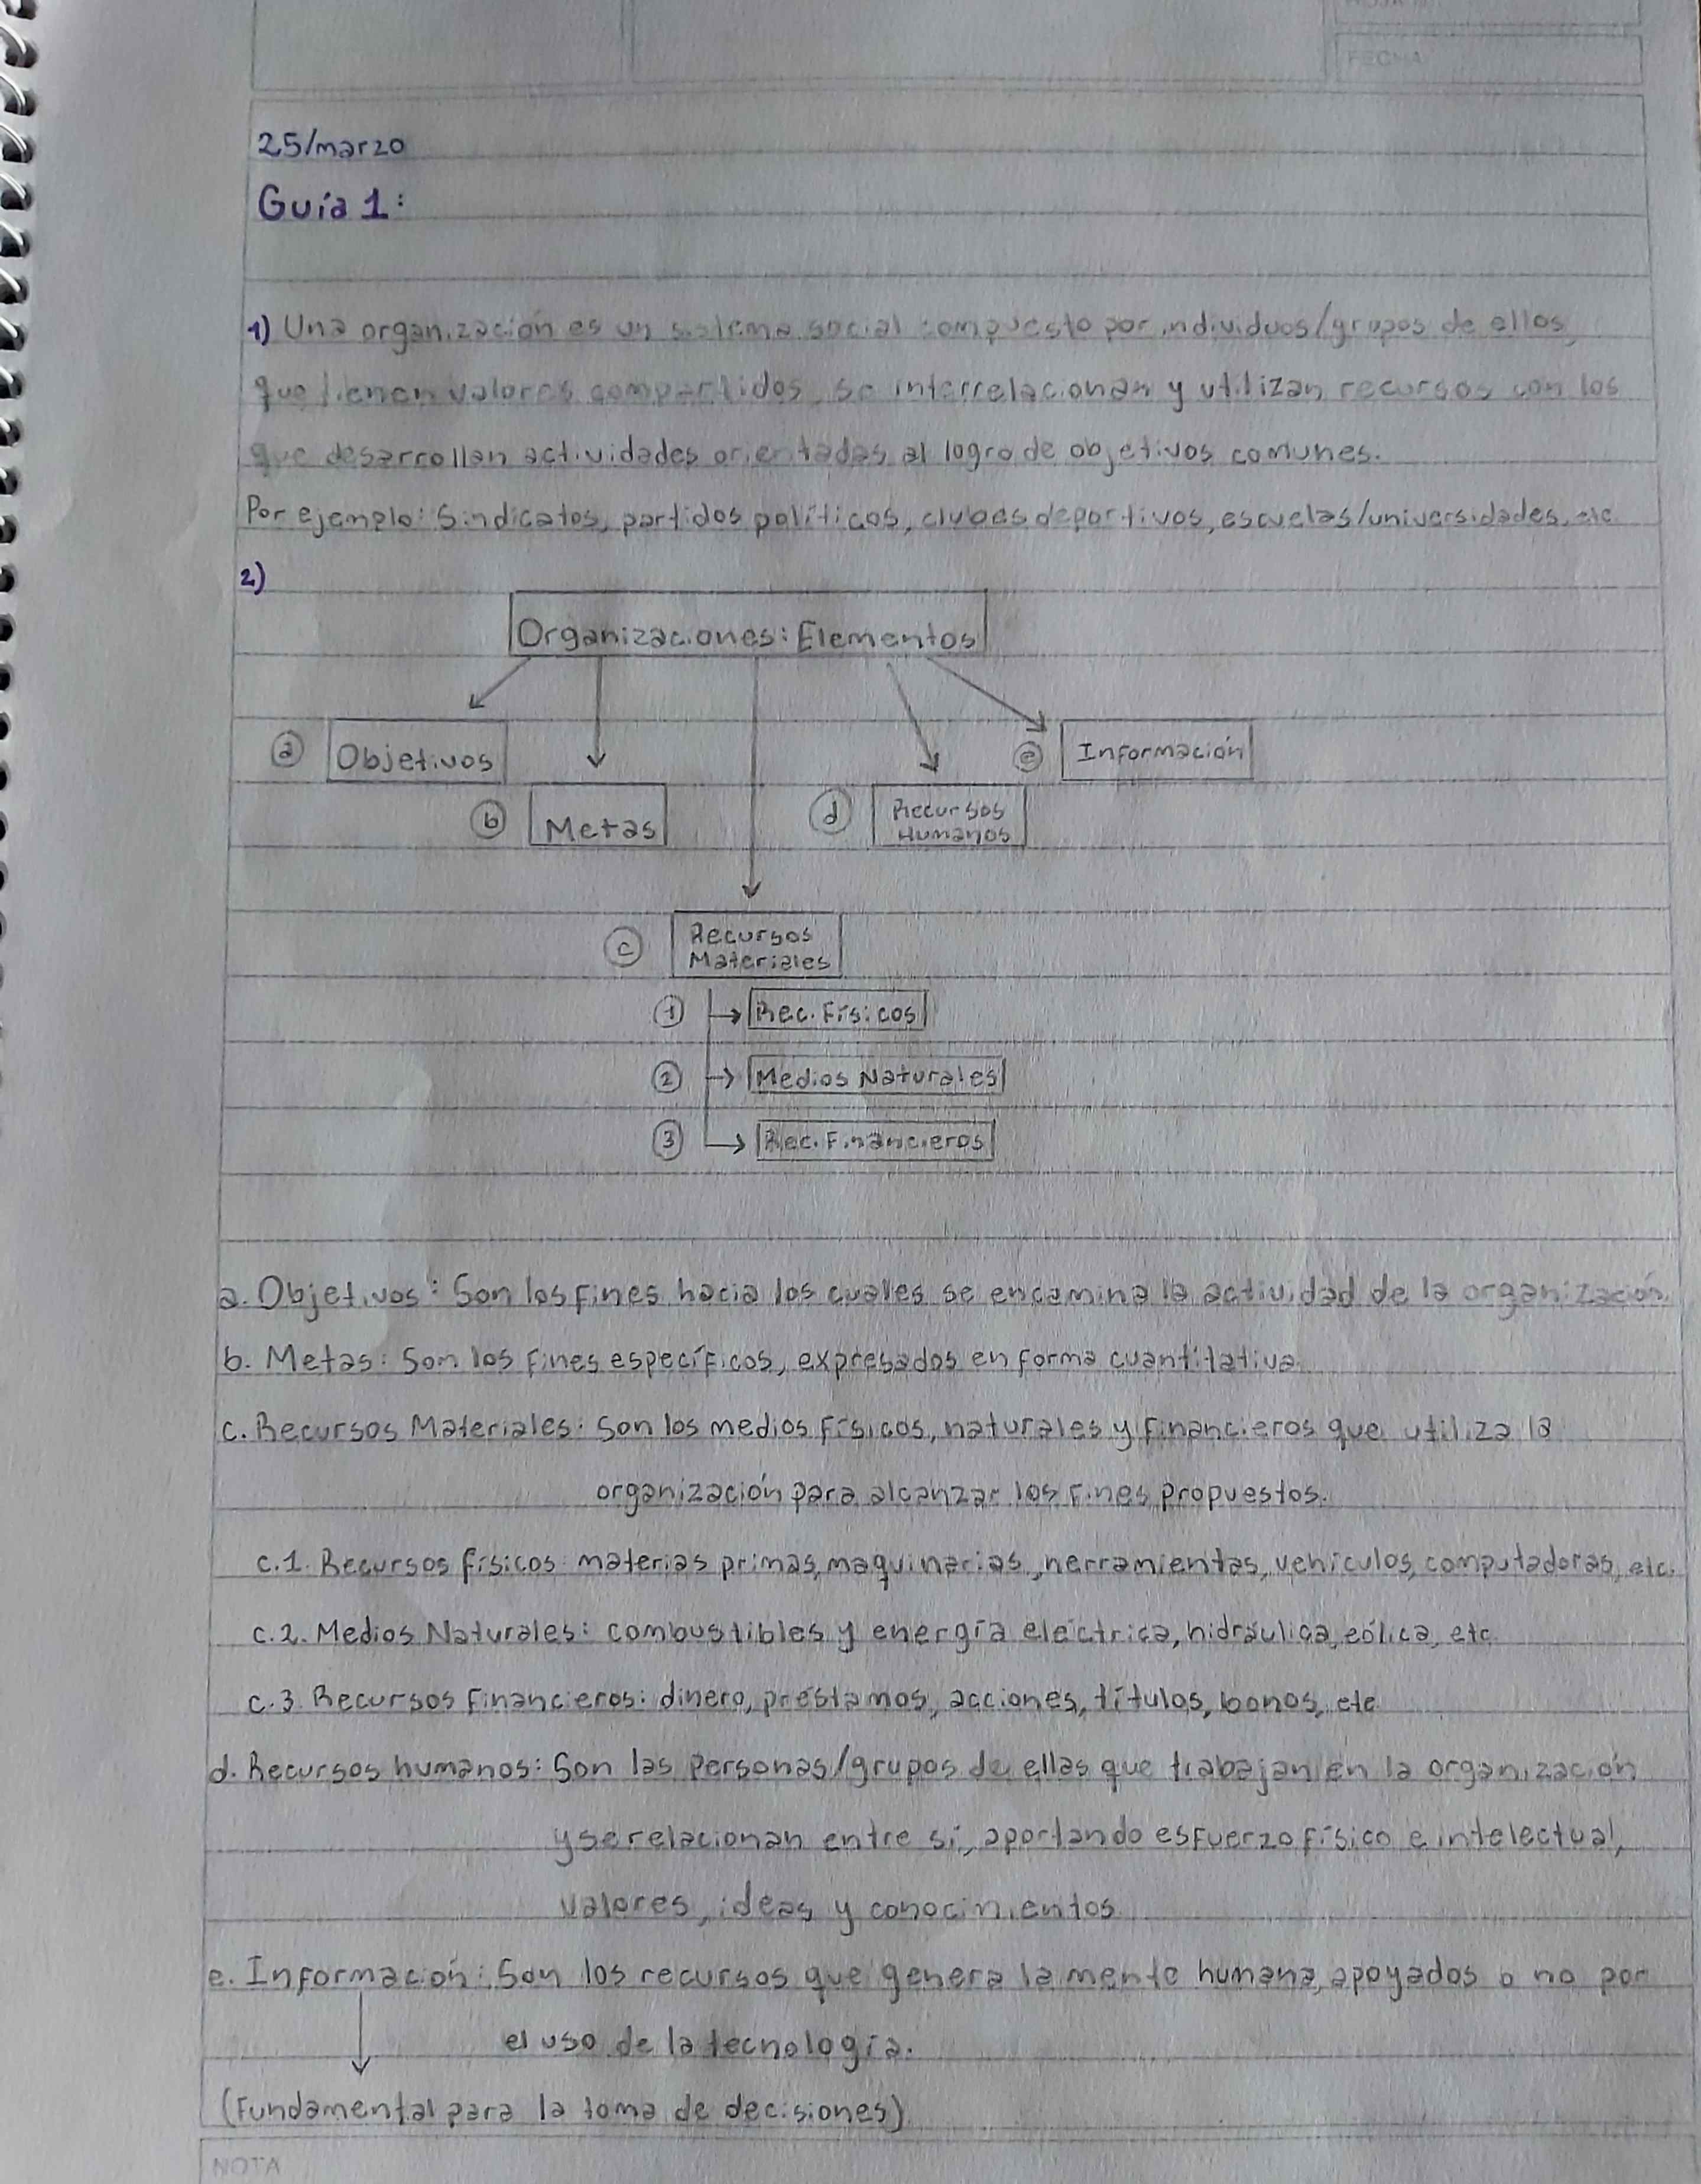 FECHA
25/marzo
Guía 1:
1) Una organización es un sistema social compuesto por individuos/grupos de ellos,
que tienen valores compartidos, se interrelacionan y utilizan recursos con los
que desarrollan actividades orientadas al logro de objetivos comunes.
Por ejemplo: Sindicatos, partidos políticos, clubes deportivos, escuelas/universidades, etc
2)
Organizaciones: Elementos
a Objetivos
e Información
b Metas
d Recursos
Humanos
c Recursos
Materiales
1 Rec. Físicos
2 Medios Naturales
3 Rec. Financieros
a. Objetivos: Son los fines hacia los cuales se encamina la actividad de la organización.
b. Metas: Son los fines específicos, expresados en forma cuantitativa.
c. Recursos Materiales: Son los medios físicos, naturales y financieros que utiliza la
organización para alcanzar los fines propuestos.
c.1. Recursos físicos: materias primas, maquinarias, herramientas, vehículos, computadoras, etc.
c.2. Medios Naturales: combustibles y energía eléctrica, hidráulica, eólica, etc.
c.3. Recursos Financieros: dinero, préstamos, acciones, títulos, bonos, etc
d. Recursos humanos: Son las personas/grupos de ellas que trabajan en la organización
y se relacionan entre sí, aportando esfuerzo físico e intelectual,
valores, ideas y conocimientos.
e. Información: Son los recursos que genera la mente humana, apoyados o no por
el uso de la tecnología.
(Fundamental para la toma de decisiones)
NOTA